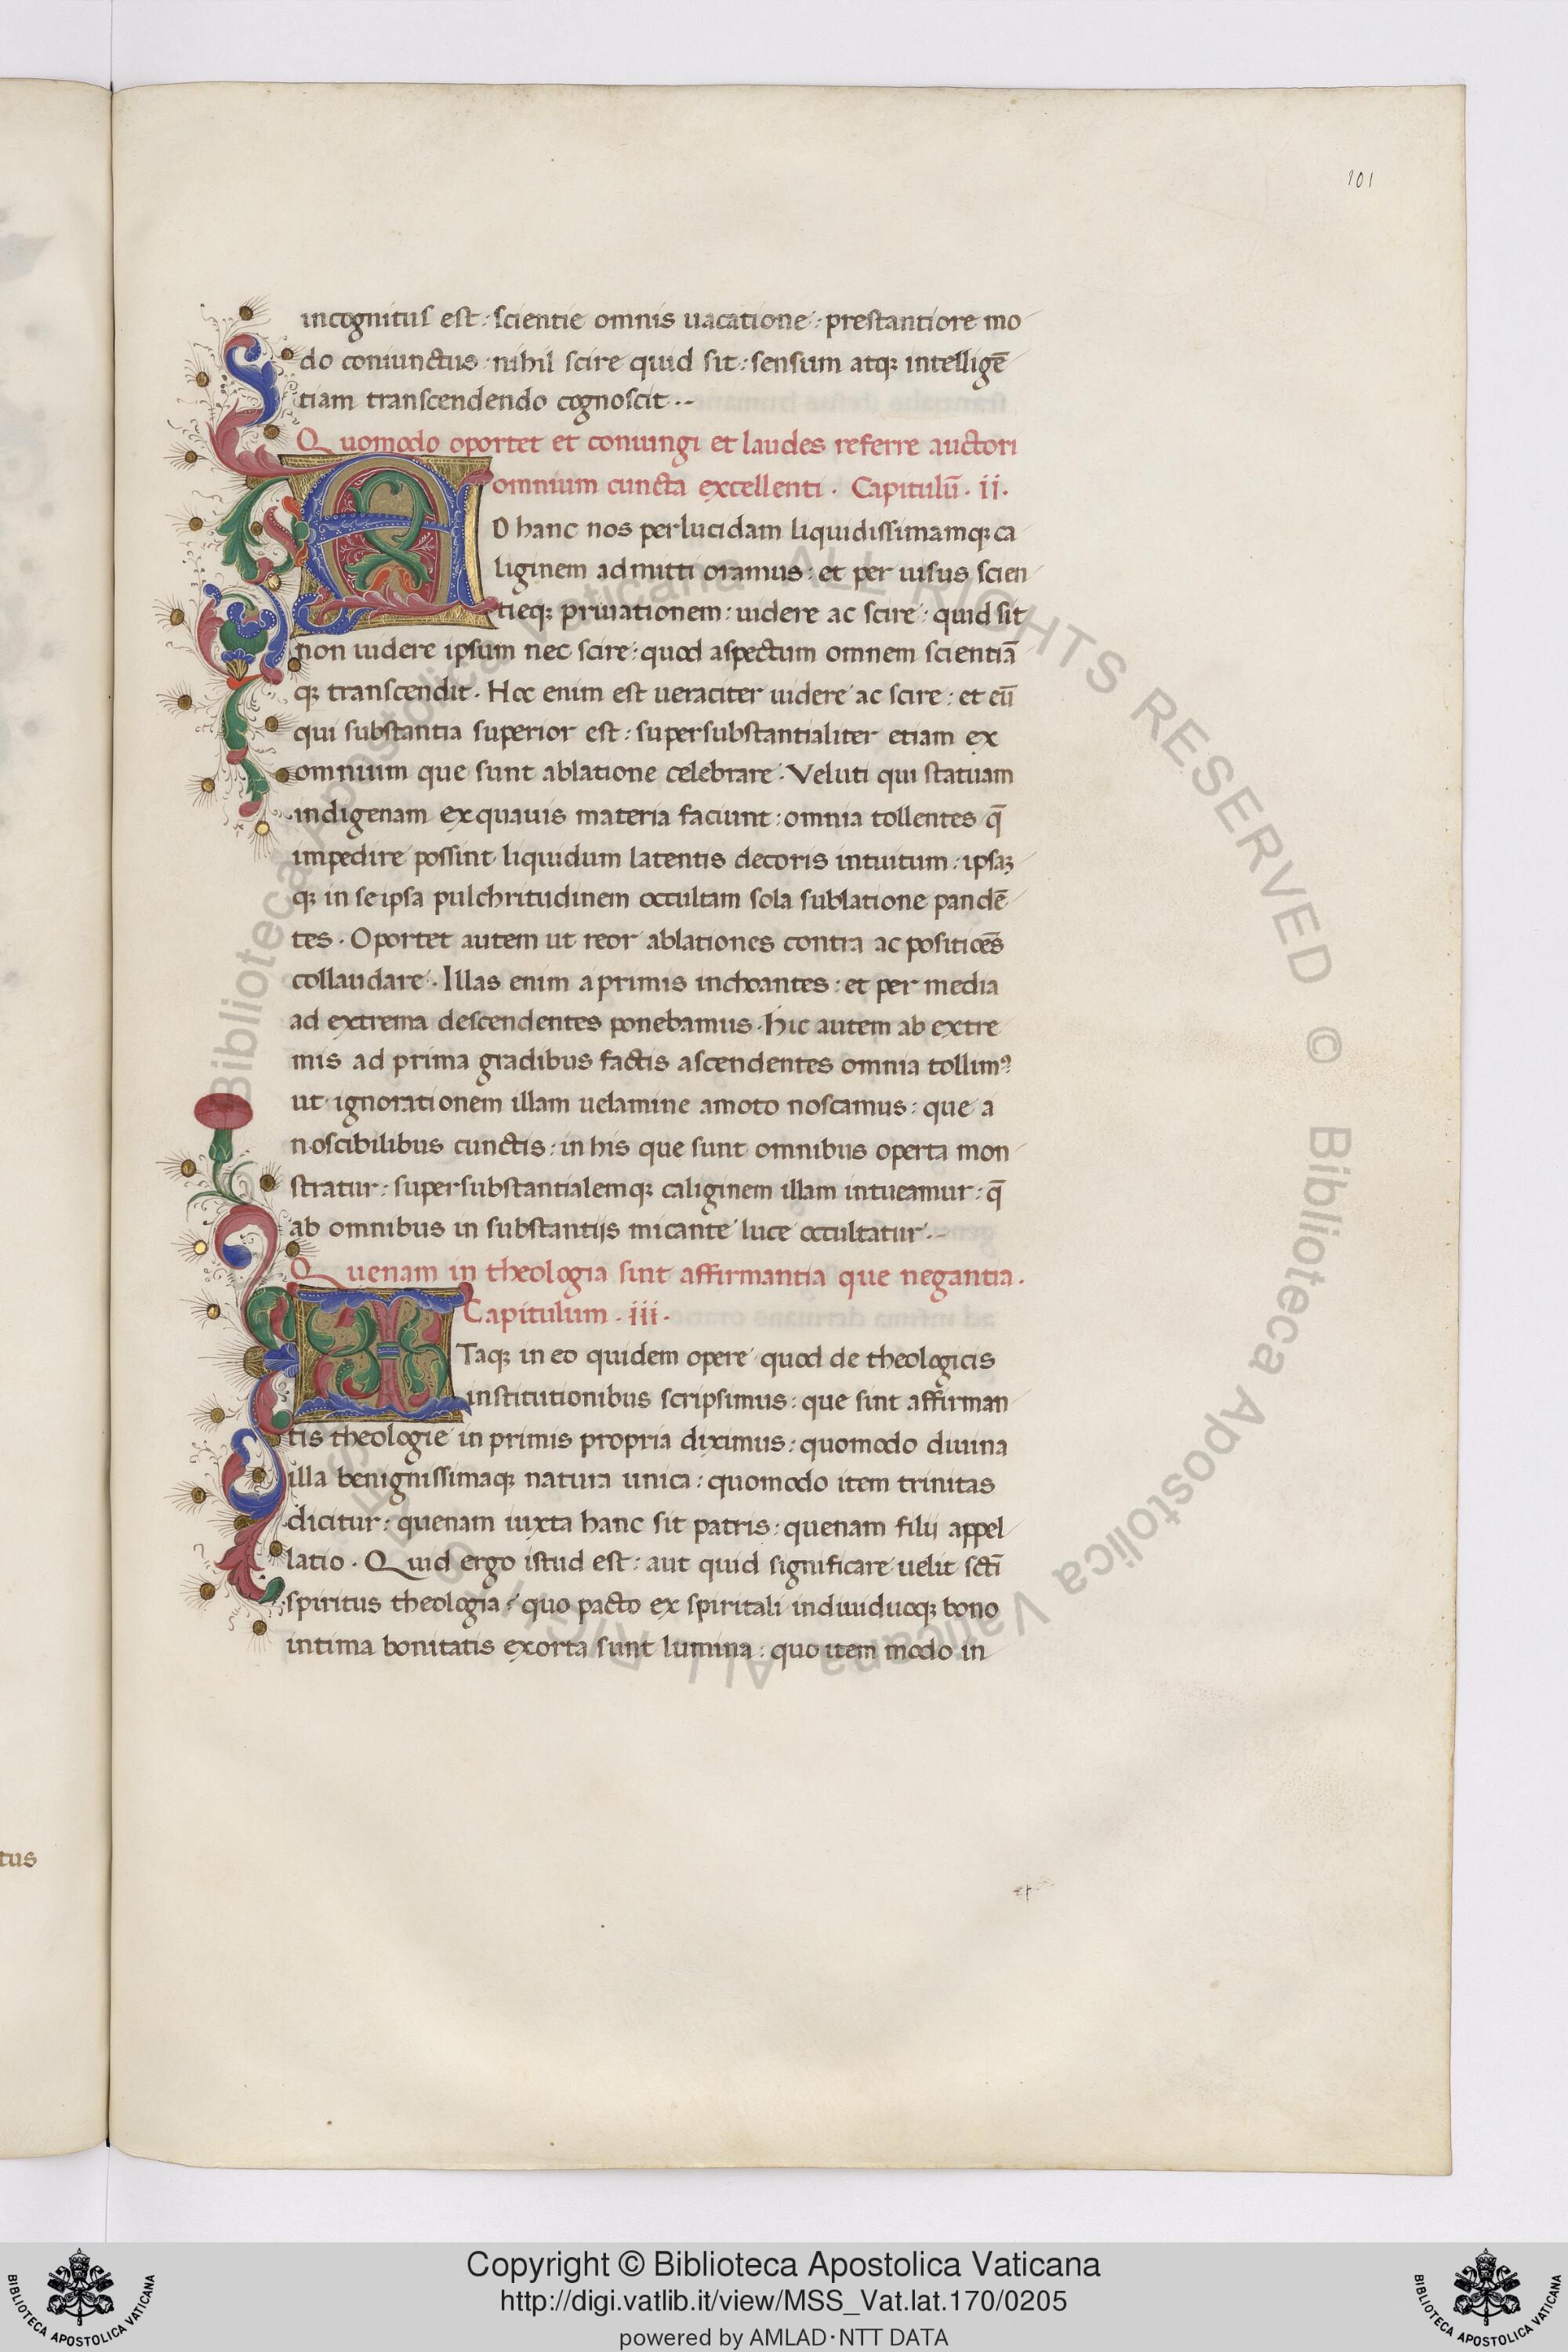 101
incognitus est: scientie omnis uacatione: prestantiore mo
do coniunctus: nihil scire quid sit: sensum atqꝫ intelligē
tiam transcendendo cognoscit.
Quomodo oportet et coniungi et laudes referre auctori
omnium cuncta excellenti. Capitulū. ii.
AD hanc nos perlucidam liquidissimamqꝫ ca
liginem admitti oramus: et per uisus scien
tieqꝫ priuationem: uidere ac scire: quid sit
non uidere ipsum nec scire: quod aspectum omnem scientiā
qꝫ transcendit. Hoc enim est ueraciter uidere ac scire: et eū
qui substantia superior est: supersubstantialiter etiam ex
omnium que sunt ablatione celebrare. Veluti qui statuam
indigenam ex quauis materia faciunt: omnia tollentes q̄
impedire possint liquidum latentis decoris intuitum: ipsaꝫ
qꝫ in se ipsa pulchritudinem occultam sola sublatione pandē
tes. Oportet autem ut reor ablationes contra ac positiōēs
collaudare. Illas enim a primis inchoantes: et per media
ad extrema descendentes ponebamus. hic autem ab extre
mis ad prima gradibus factis ascendentes omnia tollimꝰ
ut ignorationem illam uelamine amoto noscamus: que a
noscibilibus cunctis: in his que sunt omnibus operta mon
stratur: supersubstantialemqꝫ caliginem illam intueamur: q̄
ab omnibus in substantijs micante luce occultatur.
Quenam in theologia sint affirmantia que negantia.
Capitulum. iii.
ITaqꝫ in eo quidem opere quod de theologicis
institutionibus scripsimus: que sint affirman
tis theologie in primis propria diximus: quomodo diuina
illa benignissimaqꝫ natura unica: quomodo item trinitas
dicitur: quenam iuxta hanc sit patris: quenam filii appel
latio. Quid ergo istud est: aut quid significare uelit scti̅
spiritus theologia: quo pacto ex spiritali indiuiduoqꝫ bono
intima bonitatis exorta sunt lumina: quo item modo in
tus
Copyright © Biblioteca Apostolica Vaticana
http://digi.vatlib.it/view/MSS_Vat.lat.170/0205
powered by AMLAD·NTT DATA
BIBLIOTECA APOSTOLICA VATICANA
BIBLIOTECA APOSTOLICA VATICANA
© Biblioteca Apostolica Vaticana ALL RIGHTS RESERVED